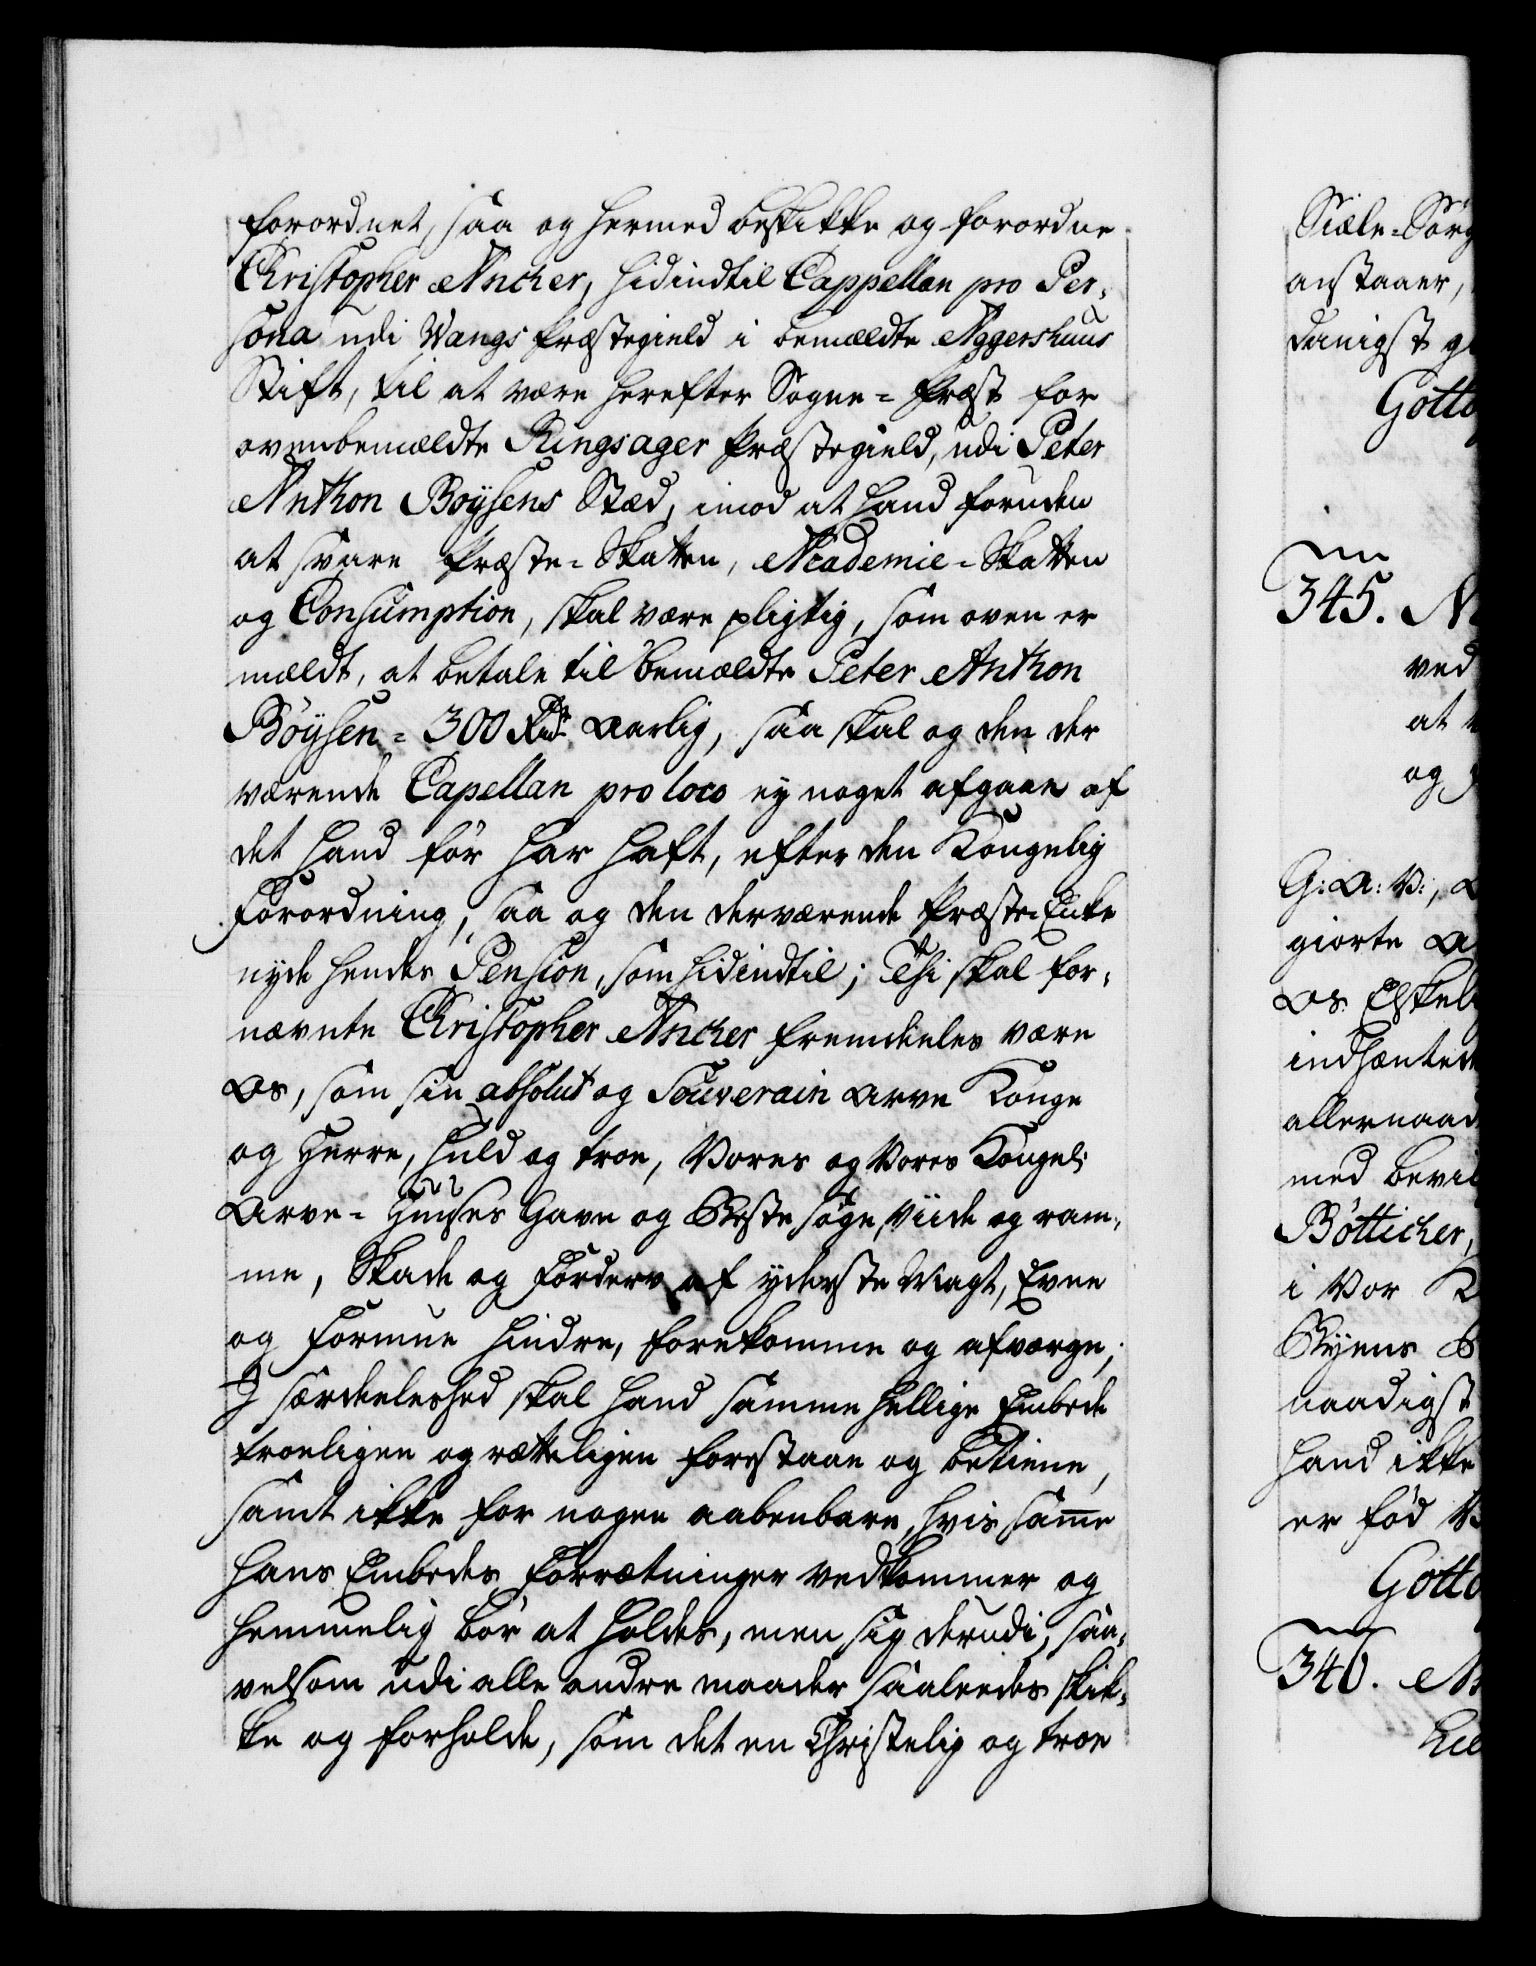 forordnet, saa og hermed beskikke og forordne
Christopher Ancher, hidindtil Cappellan pro Per,
sona udi Wangs Præstegield i bemældte Aggershuus
Stift, til at være herefter Sogne=Præst for
ovenbemældte Ringsager Præstegield, udi Peter
Anthon Boÿsens Stæd, imod at hand foruden
at svare Præste=Skatten, Academie=Skatten
og Consumption, skal være pligtig, som oven er
mældt, at betale til bemældte Peter Anthon
Böÿsen = 300 Rdr Aarlig, saa skal og den der
værende Capellan pro loco ey noget afgaae af
det hand før har haft, efter den Kongelig
Forordning, saa og den derværende Præste-Enke
nyde hendes Pension, som hidindtil; Thi skal for,
nævnte Christopher Ancher fremdeeles være
Os, som sin absolut og Souverain Arve Konge
og Herre, huld og troe, Vores og Vores Kongel:
Arve=Huuses Gavn og Beste søge, viide og ram,
me, Skade og Forderv af yderste Magt, Evne
og Formue hindre, forekomme og afværge;
I særdeeleshed skal hand samme hellige Embede
troeligen og rætteligen forestaae og betiene,
samt ikke for nogen aabenbare, hvis same
hans Embedes Forrætninger vedkommer og
hemmelig bør at holdes, men sig derudi, saa,
velsom udi alle andre maader saaleedes skik,
ke og forholde, som det en Christelig og troe
Siæle=Sørg
anstaaer,
danigst
Gotto
345.
ved
at
og
G: A: V:,
giorte
Os Elskel
indhænted
allernaad
med bevil
Bötticher,
i Vor
Byens
naadigst
hand ikke
er fød
Gotto
346.